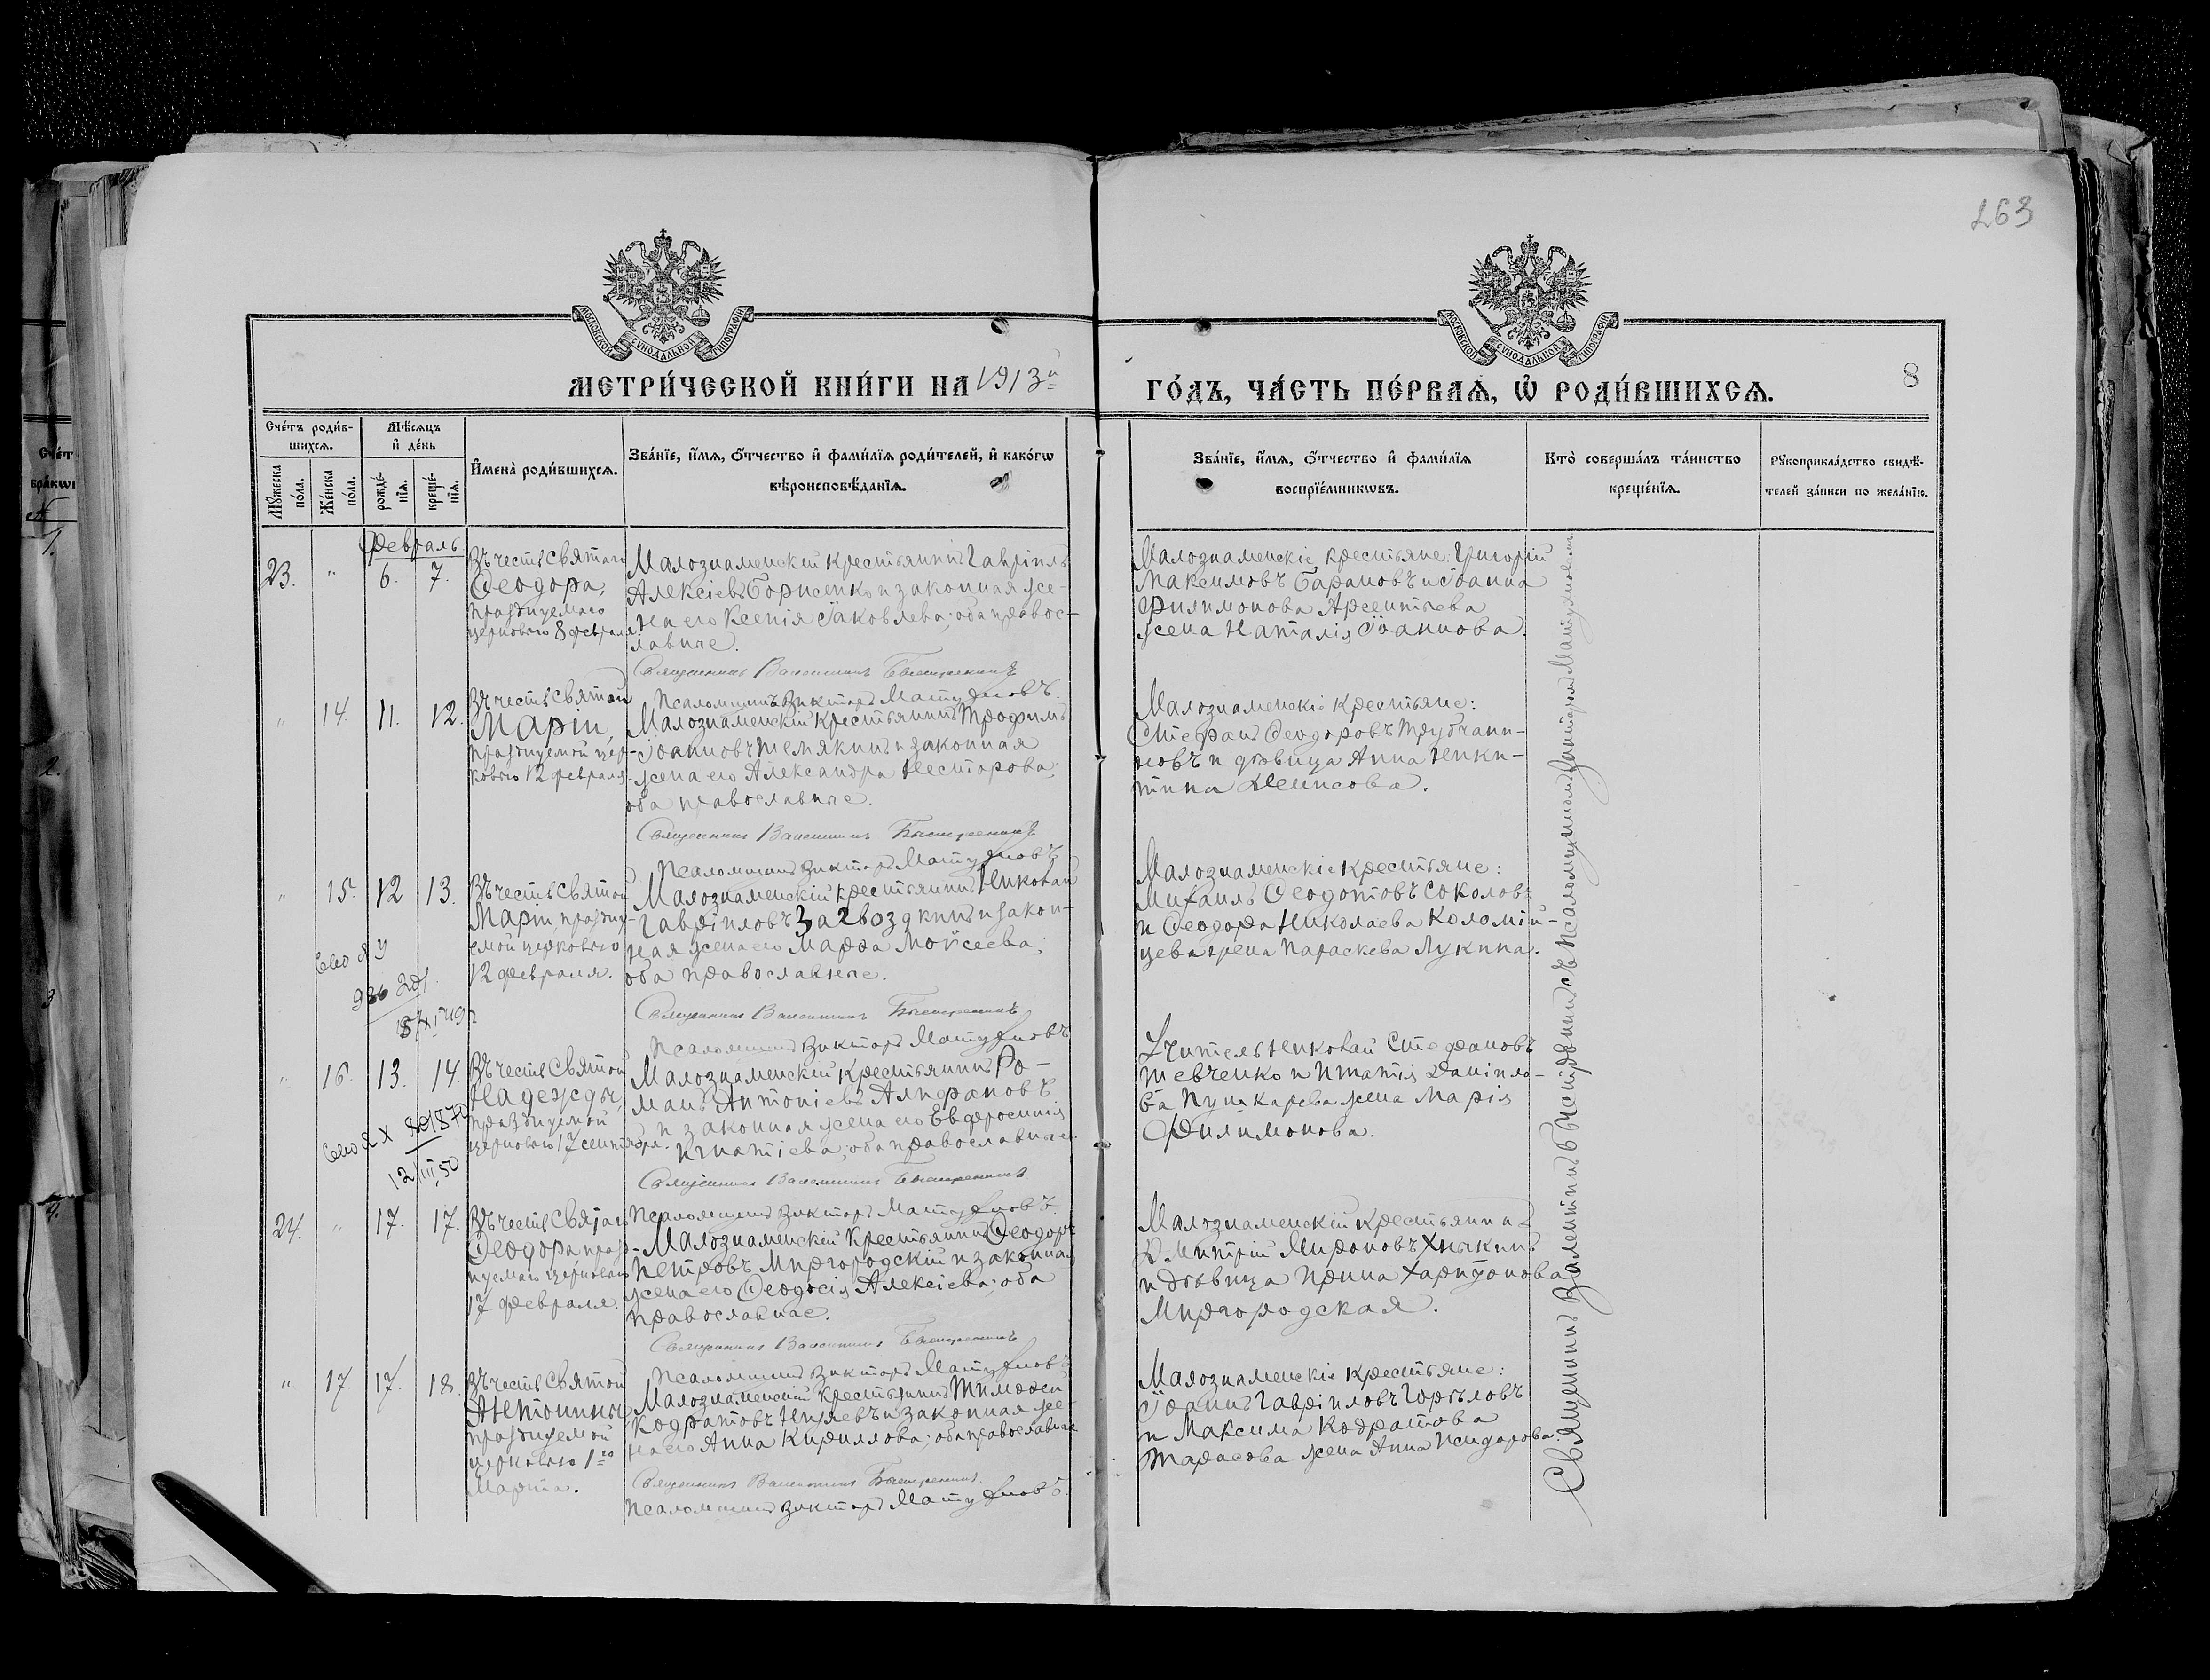 263
МОСКОВСКОЙ СУНОДАЛЬНОЙ ТИПОГРАФІИ
МОСКОВСКОЙ СУНОДАЛЬНОЙ ТИПОГРАФІИ
МЕТРИ́ЧЕСКОЙ КНИ́ГИ НА 1913й
ГО́ДЪ, ЧА́СТЬ ПЕ́РВАѦ, Ѡ҆ РОДИ́ВШИХСѦ.
8
Сче́тъ роди́в-
шихсѧ.
Мѣ́сѧцъ
и҆ де́нь
Мꙋ́жеска
по́ла.
Же́нска
по́ла.
рожде́-
нїѧ.
креще́-
нїѧ.
И҆мена̀ роди́вшихсѧ.
Зва́нїе, и҆́мѧ, о҆́тчество и҆ фами́лїѧ роди́телей, и҆ како́гѡ
вѣроисповѣ́данїѧ.
Зва́нїе, и҆́мѧ, о҆́тчество и҆ фами́лїѧ
воспрїе́мникѡвъ.
Кто̀ соверша́лъ та́инство
креще́нїѧ.
Рꙋкоприкла́дство свидѣ́-
телей за́писи по жела́нїю.
Февраль
23. " 6. 7.
Въ честь Святаго
Ѳеодора,
празднуемаго
церковью 8 февраля.
Малознаменскій крестьянинъ Гавріилъ
Алексіевъ Борисенко и законная же-
на его Ксенія Іаковлева; оба правос-
лавные.
Священникъ Валентинъ
Псаломщикъ Викторъ
Малознаменскіе крестьяне: Григорій
Максимовъ Барановъ и Іоанна
Филимонова Арсентьева
жена Наталія Іоаннова.
" 14. 11. 12.
Въ честь Святой
Маріи,
празднуемой цер-
ковью 12 февраля.
Малознаменскій крестьянинъ Трофимъ
Іоанновъ Шемякинъ и законная
жена его Александра Несторова;
оба православные.
Священникъ Валентинъ
Псаломщикъ Викторъ
Малознаменскіе крестьяне:
Стефанъ Ѳеодоровъ Трубчани-
новъ и дѣвица Анна Ники-
тина Денисова.
" 15. 12 13.
Въ честь Святой
Маріи, праздну-
емой церковью
12 февраля.
Малознаменскій крестьянинъ Николай
Гавріиловъ Загвоздкинъ и закон-
ная жена его Марѳа Мойсеева;
оба православные.
Священникъ Валентинъ
Псаломщикъ Викторъ
Малознаменскіе крестьяне:
Михаилъ Ѳеодотовъ Соколовъ
и Ѳеодора Николаева Коломій-
цева жена Параскева Лукина.
" 16. 13. 14.
Въ честь Святой
Надежды,
празднуемой
церковью 17 сентября.
12/III 50
Малознаменскій крестьянинъ Ро-
манъ Антоніевъ Алифановъ
и законная жена его Евфросинія
Игнатіева; оба православные.
Священникъ Валентинъ
Псаломщикъ Викторъ
Учитель Николай Стефановъ
Шевченко и Игнатія Даніило-
ва Пушкарева жена Марія
Филимонова.
24. " 17. 17.
Въ честь Святаго
Ѳеодора празд-
нуемаго церковью
17 февраля.
Малознаменскій крестьянинъ Ѳеодоръ
Петровъ Миргородскій и законная
жена его Ѳеодосія Алексіева; оба
православные.
Священникъ Валентинъ
Псаломщикъ Викторъ
Малознаменскій крестьянинъ
Димитрій Мироновъ Хныкинъ
и дѣвица Ирина Харитонова
Миргородская.
" 17. 17. 18.
Въ честь Святой
Антонины
празднуемой
церковью 1го
Марта.
Малознаменскій крестьянинъ Тимоѳей
Кодратовъ и законная же-
на его Анна Кириллова; оба православные
Священникъ Валентинъ
Псаломщикъ Викторъ
Малознаменскіе крестьяне:
Іоаннъ Гавріиловъ Горѣловъ
и Максима Кодратова
Тарасова жена Анна Исидорова.
Священникъ Валентинъ съ псаломщикомъ Викторомъ